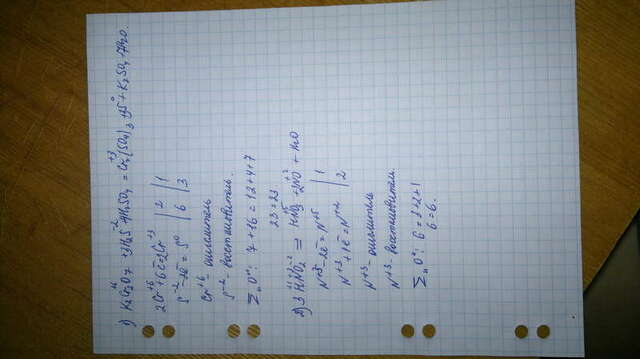 1) K₂Cr₂⁺⁶O₇ + 3H₂S⁻² + 4H₂SO₄ = Cr₂⁺³(SO₄)₃ + 3S⁰ + K₂SO₄ + 7H₂O.
2Cr⁺⁶ + 6ē = 2Cr⁺³ | 2 | 1
S⁻² - 2ē = S⁰ | 6 | 3
Cr⁺⁶ - окислитель
S⁻² - восстановитель.
Σn "O": 7 + 16 = 12 + 4 + 7
23 = 23
2) 3HNO₂ = HNO₃ + 2NO + H₂O
N⁺³ - 2ē = N⁺⁵ | 1
N⁺³ + 1ē = N⁺² | 2
N⁺³ - окислитель
N⁺³ - восстановитель.
Σn "O": 6 = 3 + 2 + 1
6 = 6.